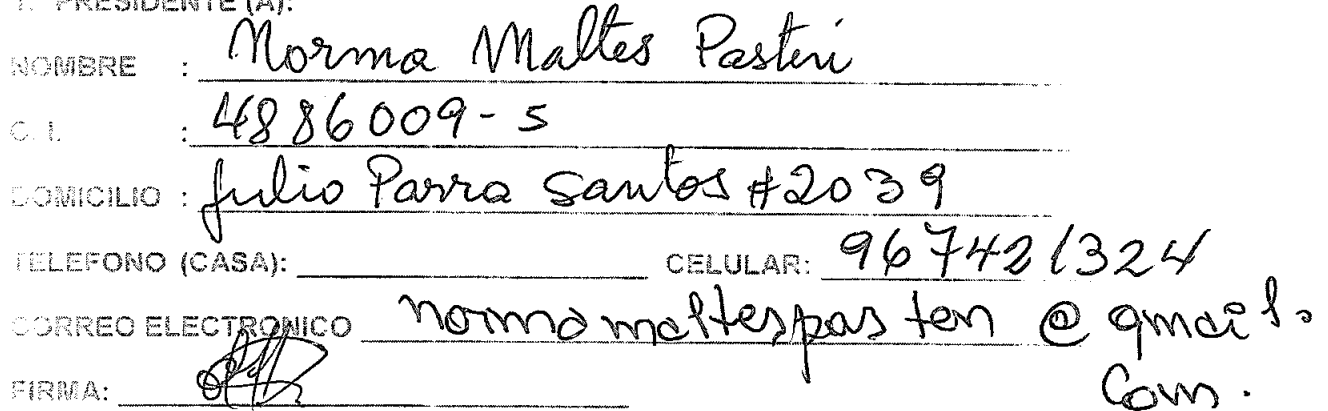 1. PRESIDENTE (A):
NOMBRE : Norma Maltes Pasten
C. I. : 4886009-5
DOMICILIO : Julio Parra Santos #2039
TELEFONO (CASA): CELULAR: 967421324
CORREO ELECTRONICO normamaltespasten@gmail.
com.
FIRMA: